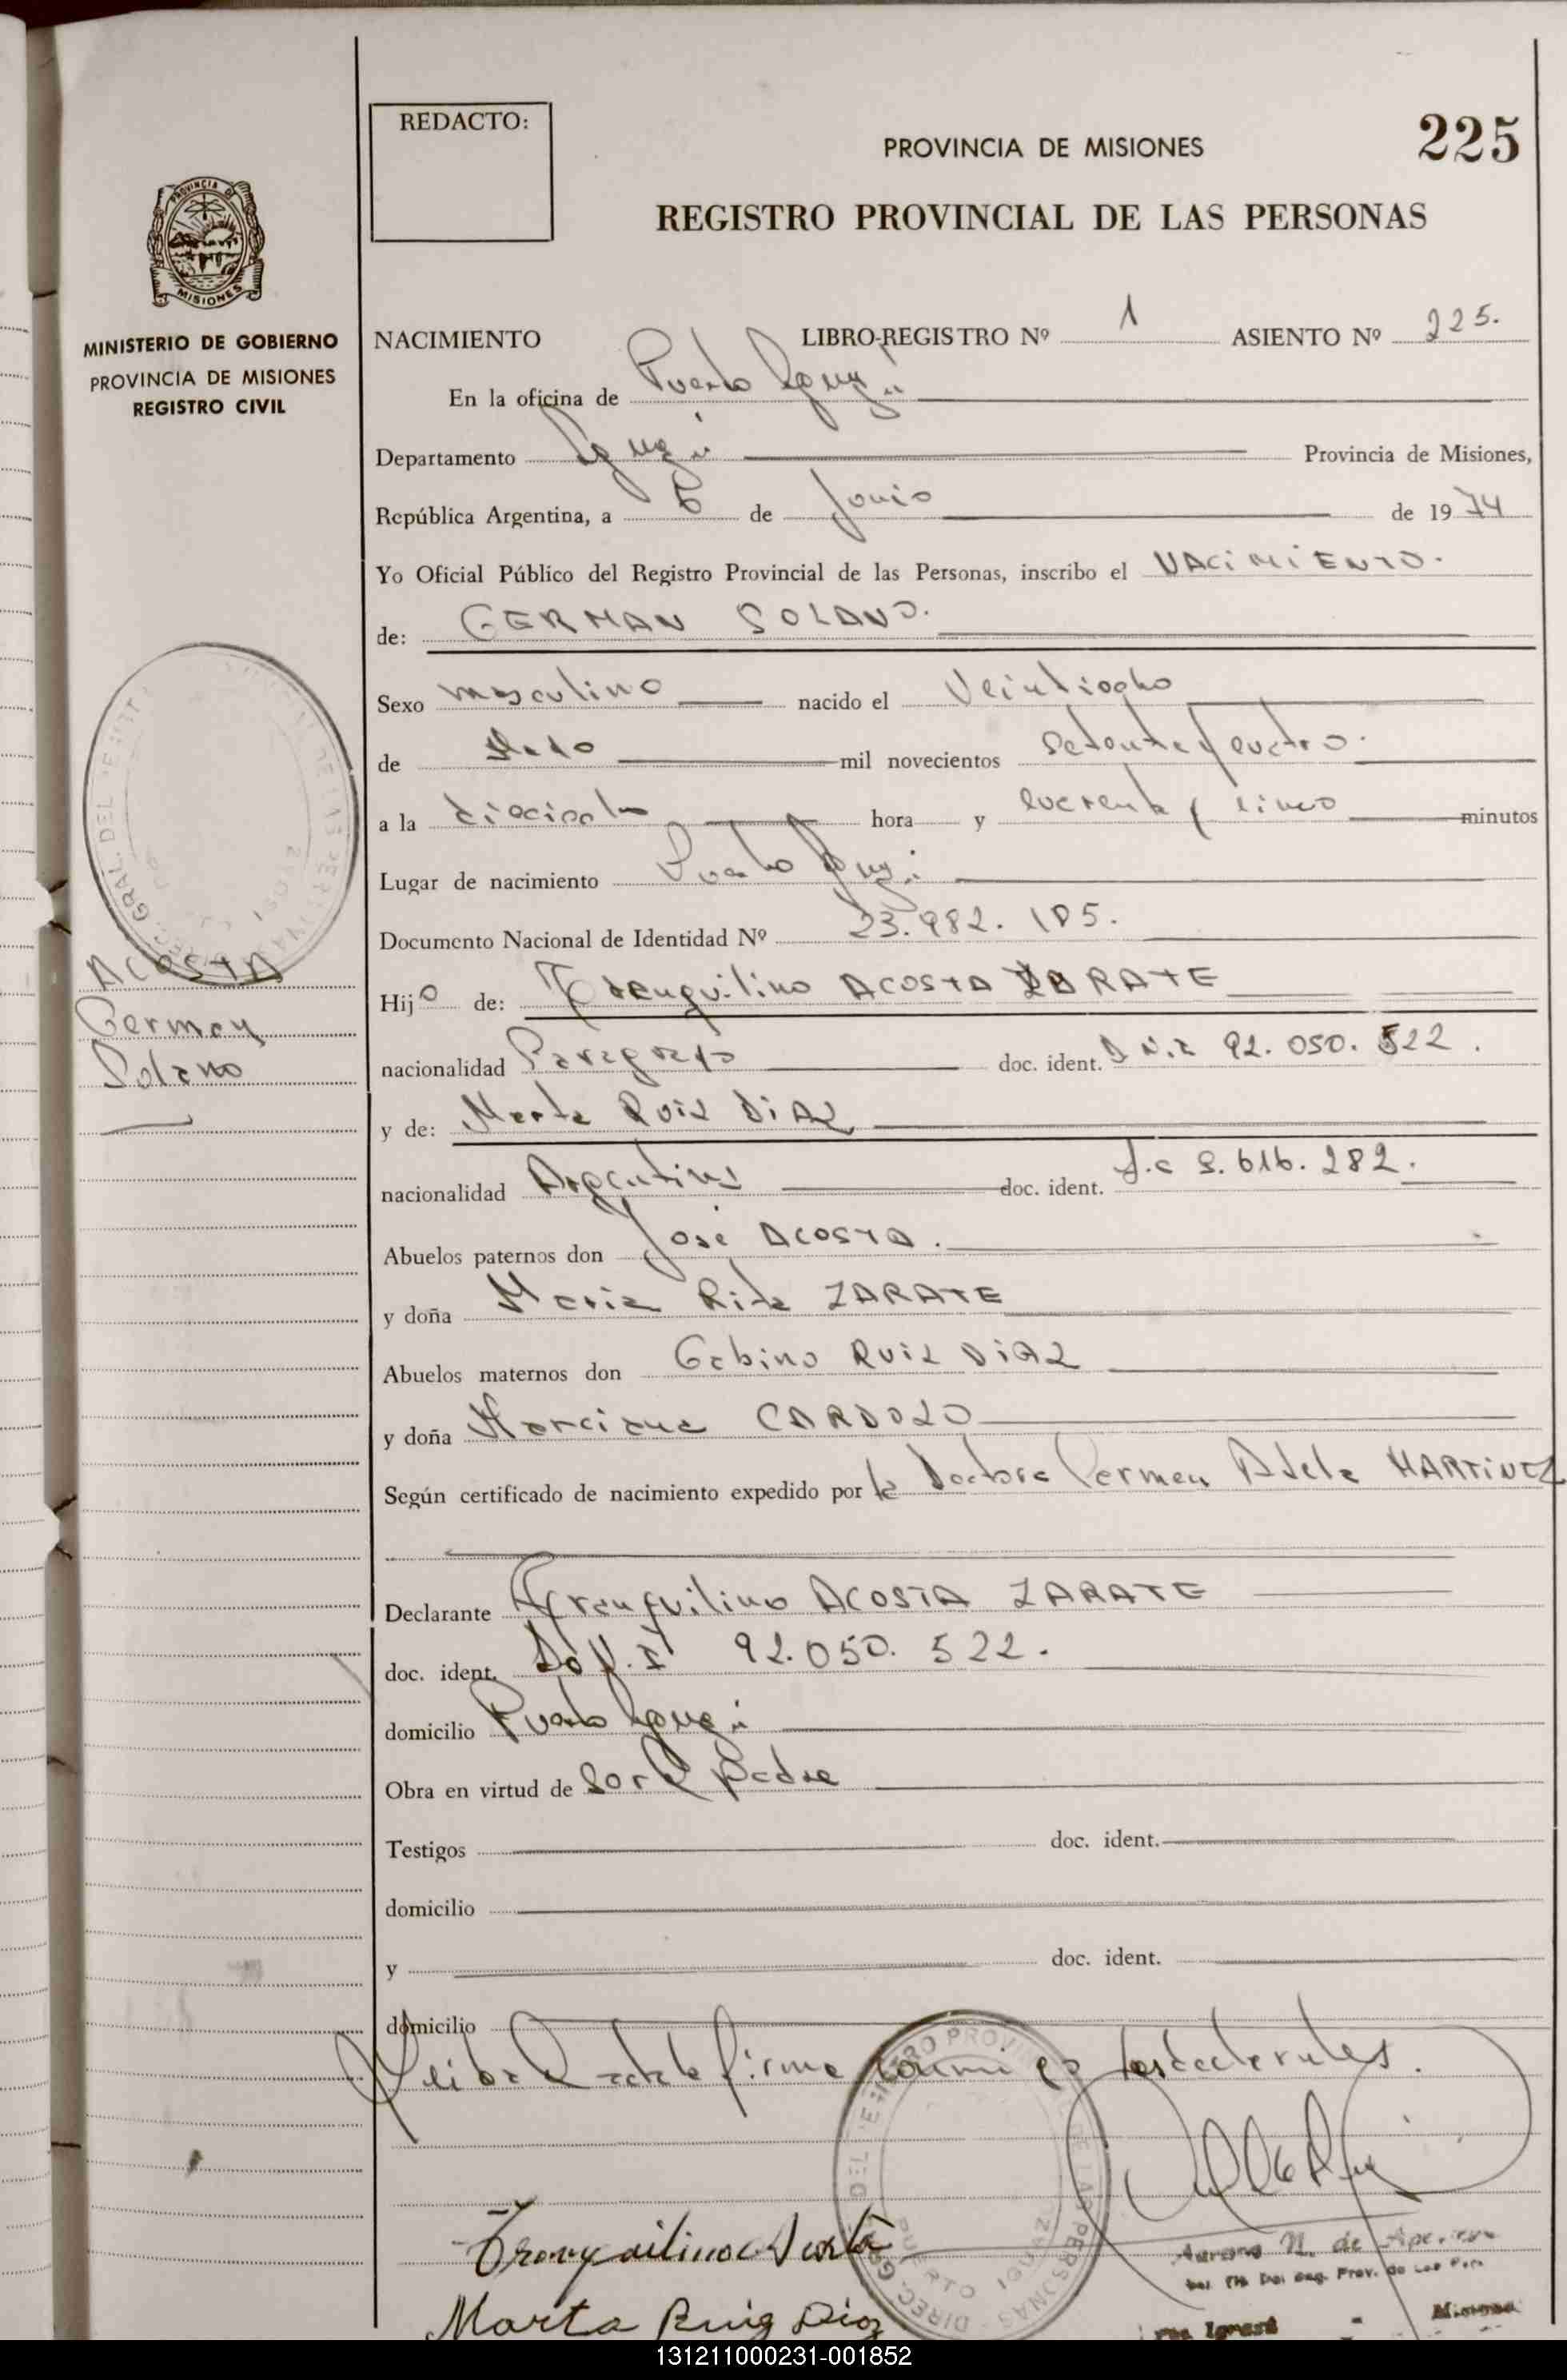 REDACTO:
PROVINCIA DE MISIONES
225
REGISTRO PROVINCIAL DE LAS PERSONAS
PROVINCIA D
MISIONES
MINISTERIO DE GOBIERNO
PROVINCIA DE MISIONES
REGISTRO CIVIL
NACIMIENTO LIBRO-REGISTRO Nº 1 ASIENTO Nº 225.
En la oficina de Puerto Iguazú
Departamento Iguazú Provincia de Misiones,
República Argentina, a 6 de Junio de 1974
Yo Oficial Público del Registro Provincial de las Personas, inscribo el NACIMIENTO.
de: GERMAN SOLANO.
Sexo masculino nacido el Veintiocho
de Mayo mil novecientos setenta y cuatro.
a la hora y cuarenta y cinco minutos
Lugar de nacimiento Puerto Iguazú
Documento Nacional de Identidad Nº 23.982.185.
ACOSTA
German
Solano
Hijo de: Tranquilino ACOSTA ZARATE
nacionalidad Paraguayo doc. ident. D.N.I 92.050.522.
y de: Marta RUIZ DIAZ
nacionalidad Argentina doc. ident. L.C 5.616.282.
Abuelos paternos don José ACOSTA.
y doña Maria Rita ZARATE
Abuelos maternos don Gabino RUIZ DIAZ
y doña Marciana CARDOZO
Según certificado de nacimiento expedido por la Doctora Carmen Adela MARTINEZ
Declarante Tranquilino ACOSTA ZARATE
doc. ident. D.N.I 92.050.522.
domicilio Puerto Iguazú
Obra en virtud de ser el padre
Testigos doc. ident.
domicilio
y doc. ident.
domicilio
Leida el acta la firma conmigo
Tranquilino Acosta
Marta Ruiz Diaz
Aurora N. de
Misiones
131211000231-001852